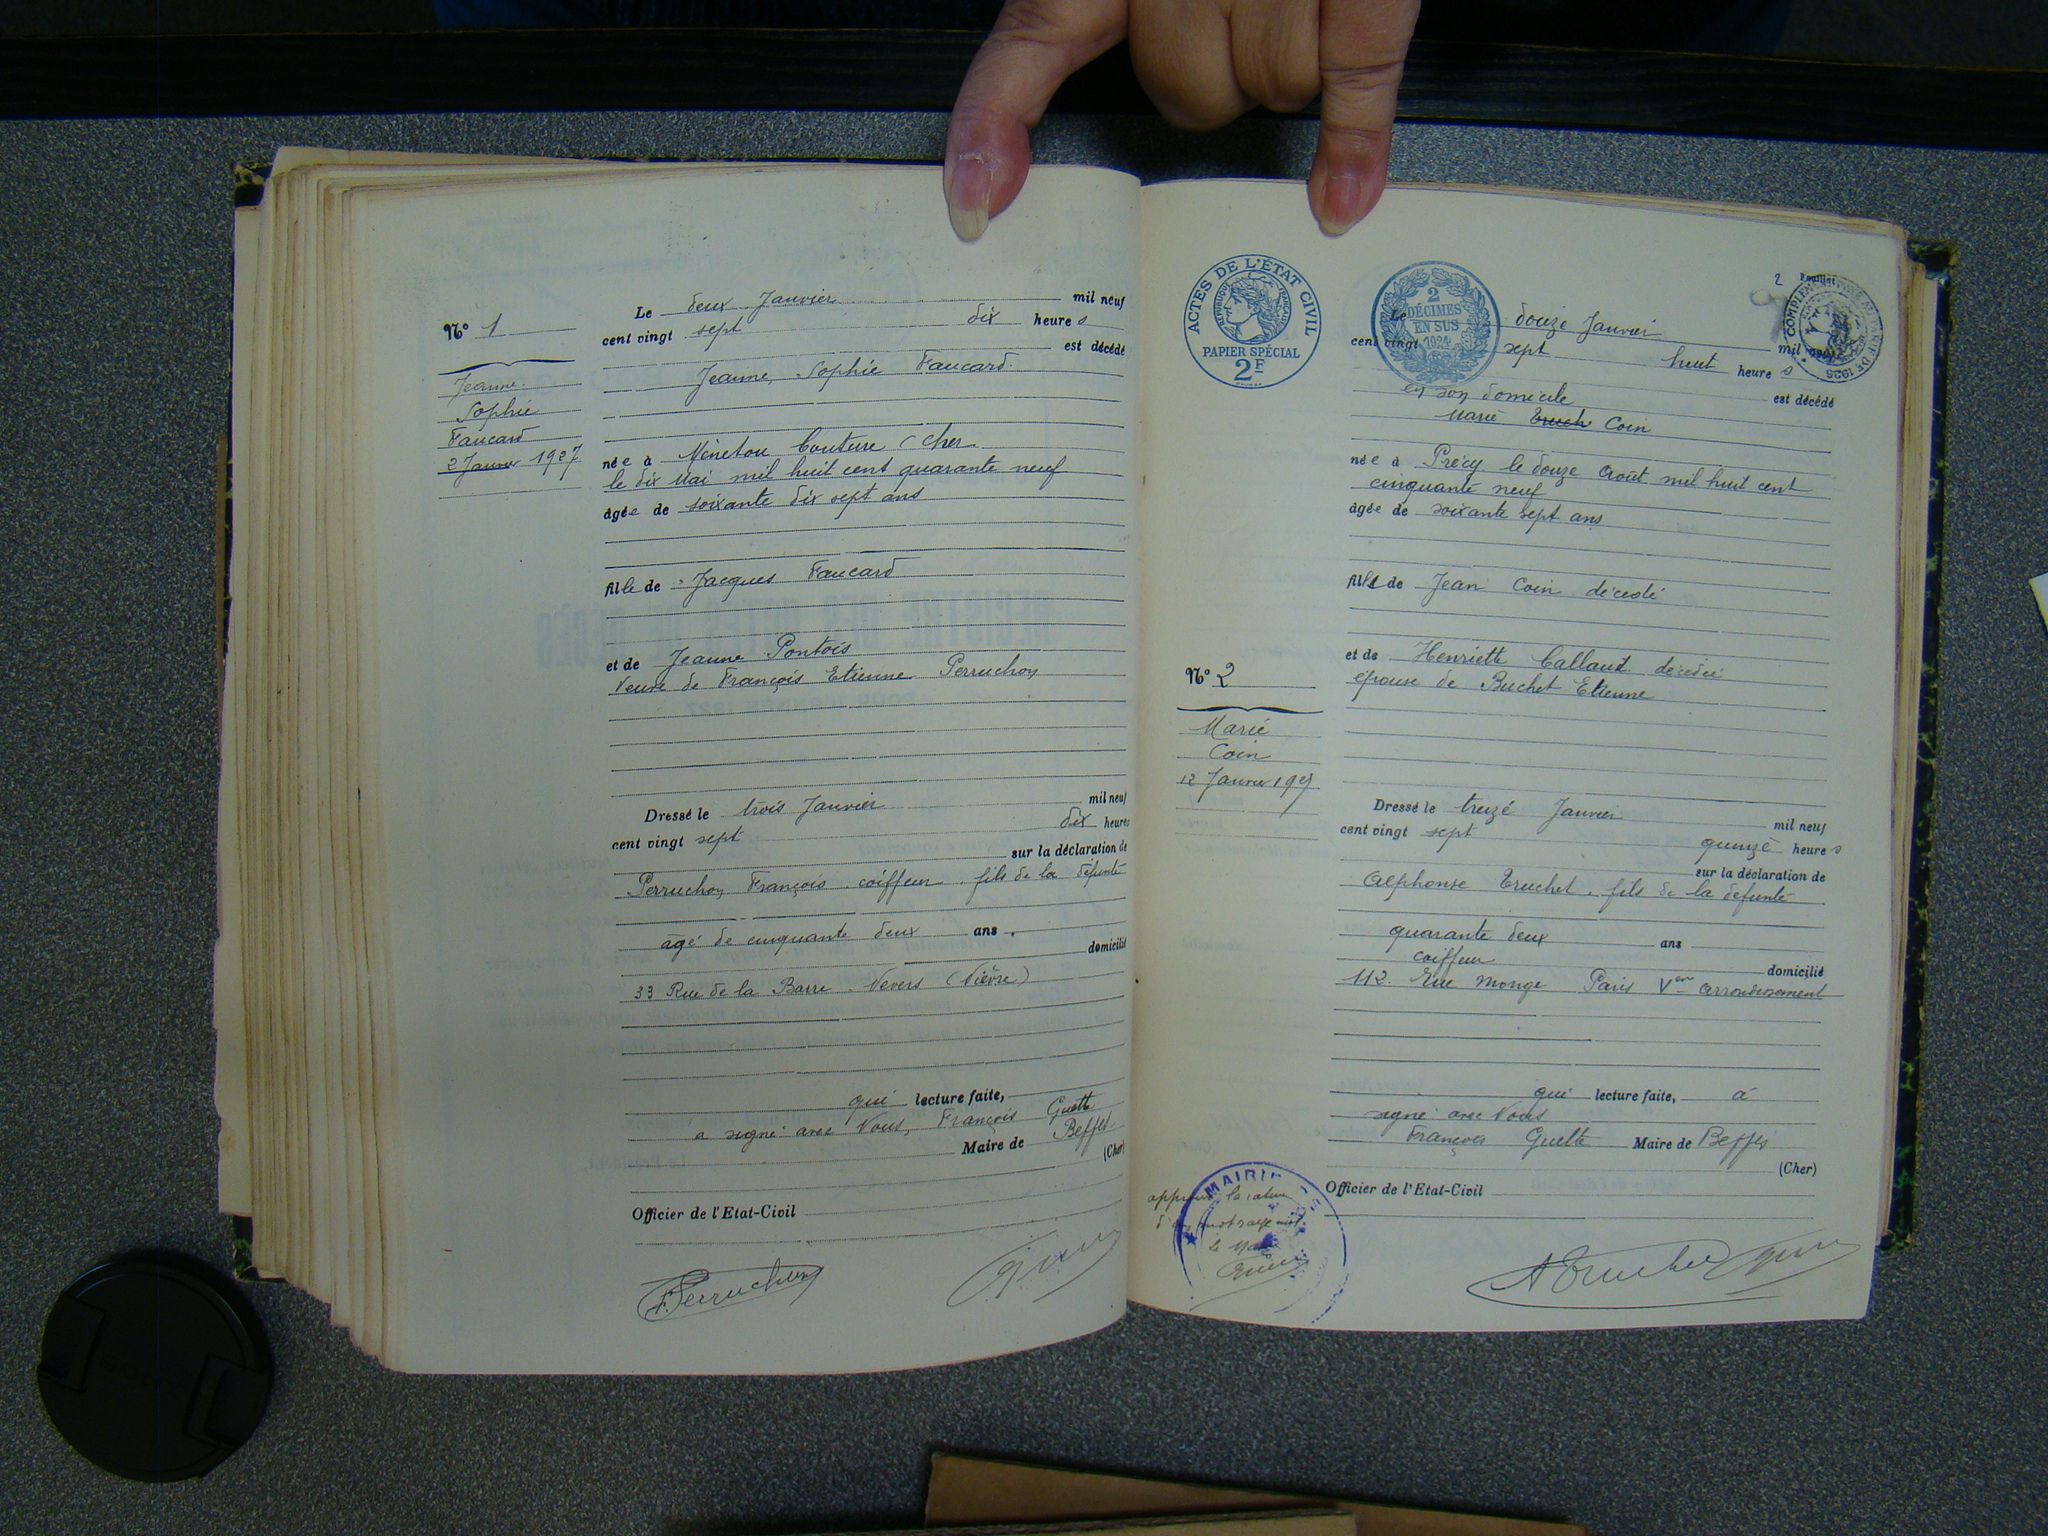 N° 1
Jeanne
Sophie
Faucard
2 Janvier 1927
Le deux Janvier mil neuf
cent vingt sept dix heures
est décédé
Jeanne, Sophie Faucard.
née à Ménetou Couture (Cher
le dix Mai mil huit cent quarante neuf
âgée de soixante dix sept ans
fille de Jacques Faucard
et de Jeanne Pontois
Veuve de François Etienne Perruchon
Dressé le trois Janvier mil neuf
cent vingt sept dix heures
sur la déclaration de
Perruchon François coiffeur, fils de la défunte
âgé de cinquante deux ans.
domicilié
33 Rue de la Barre Nevers (Nièvre)
qui lecture faite,
a signé avec Nous, François Guette
Maire de Beffes
(Cher)
Officier de l'Etat-Civil
F. Perruchon
ACTES DE L'ÉTAT CIVIL
RÉPUBLIQUE FRANÇAISE
PAPIER SPÉCIAL
2F
2 DÉCIMES
EN SUS
1924
2 Feuillet
N° 2
Marie
Coin
12 Janvier 1927
Le douze Janvier mil neuf
cent vingt sept huit heures
en son domicile est décédé
Marie Truch Coin
née à Précy le douze Août mil huit cent
cinquante neuf
âgée de soixante sept ans
fille de Jean Coin décédé
et de Henriette Callaud décédée
épouse de Buchet Etienne
Dressé le treize Janvier mil neuf
cent vingt sept quinze heures
sur la déclaration de
Alphonse Truchet, fils de la défunte
quarante deux ans
coiffeur domicilié
112. Rue Monge Paris Vem arrondissement
qui lecture faite, a
signé avec Nous
François Guette Maire de Beffes
(Cher)
Officier de l'Etat-Civil
MAIRIE DE
le Maire
A Truchet